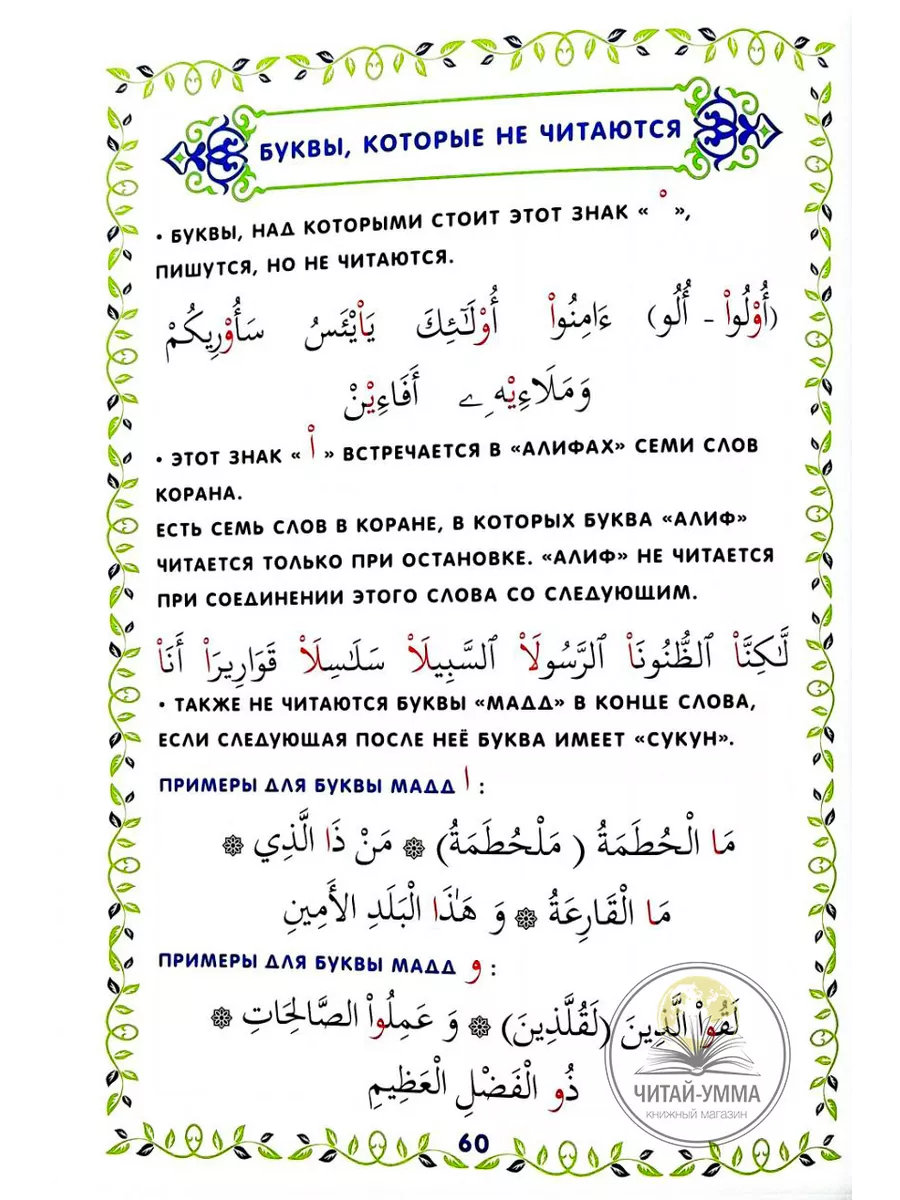 БУКВЫ, КОТОРЫЕ НЕ ЧИТАЮТСЯ
• БУКВЫ, НАД КОТОРЫМИ СТОИТ ЭТОТ ЗНАК « ْ »,
ПИШУТСЯ, НО НЕ ЧИТАЮТСЯ.
(أُوْلُواْ - أُلُو) ءَامِنُواْ أُوْلَـٰٓئِكَ يَاْيْئَسُ سَأُوْرِيكُمْ
وَمَلَاءِيْهِے أَفَاءِيْنْ
• ЭТОТ ЗНАК « اْ » ВСТРЕЧАЕТСЯ В «АЛИФАХ» СЕМИ СЛОВ
КОРАНА.
ЕСТЬ СЕМЬ СЛОВ В КОРАНЕ, В КОТОРЫХ БУКВА «АЛИФ»
ЧИТАЕТСЯ ТОЛЬКО ПРИ ОСТАНОВКЕ. «АЛИФ» НЕ ЧИТАЕТСЯ
ПРИ СОЕДИНЕНИИ ЭТОГО СЛОВА СО СЛЕДУЮЩИМ.
لَّـٰكِنَّاْ ٱلظُّنُونَاْ ٱلرَّسُولَاْ ٱلسَّبِيلَاْ سَلَـٰسِلَاْ قَوَارِيرَاْ أَنَاْ
• ТАКЖЕ НЕ ЧИТАЮТСЯ БУКВЫ «МАДД» В КОНЦЕ СЛОВА,
ЕСЛИ СЛЕДУЮЩАЯ ПОСЛЕ НЕЁ БУКВА ИМЕЕТ «СУКУН».
ПРИМЕРЫ ДЛЯ БУКВЫ МАДД ا :
مَا الْحُطَمَةُ ( مَلْحُطَمَةُ) ۞ مَنْ ذَا الَّذِي ۞
مَا الْقَارِعَةُ ۞ وَ هَـٰذَا الْبَلَدِ الأَمِينِ
ПРИМЕРЫ ДЛЯ БУКВЫ МАДД و :
لَقُواْ الَّذِينَ (لَقُلَّذِينَ) ۞ وَ عَمِلُواْ الصَّالِحَاتِ ۞
ذُو الْفَضْلِ الْعَظِيمِ
ЧИТАЙ-УММА
КНИЖНЫЙ МАГАЗИН
60